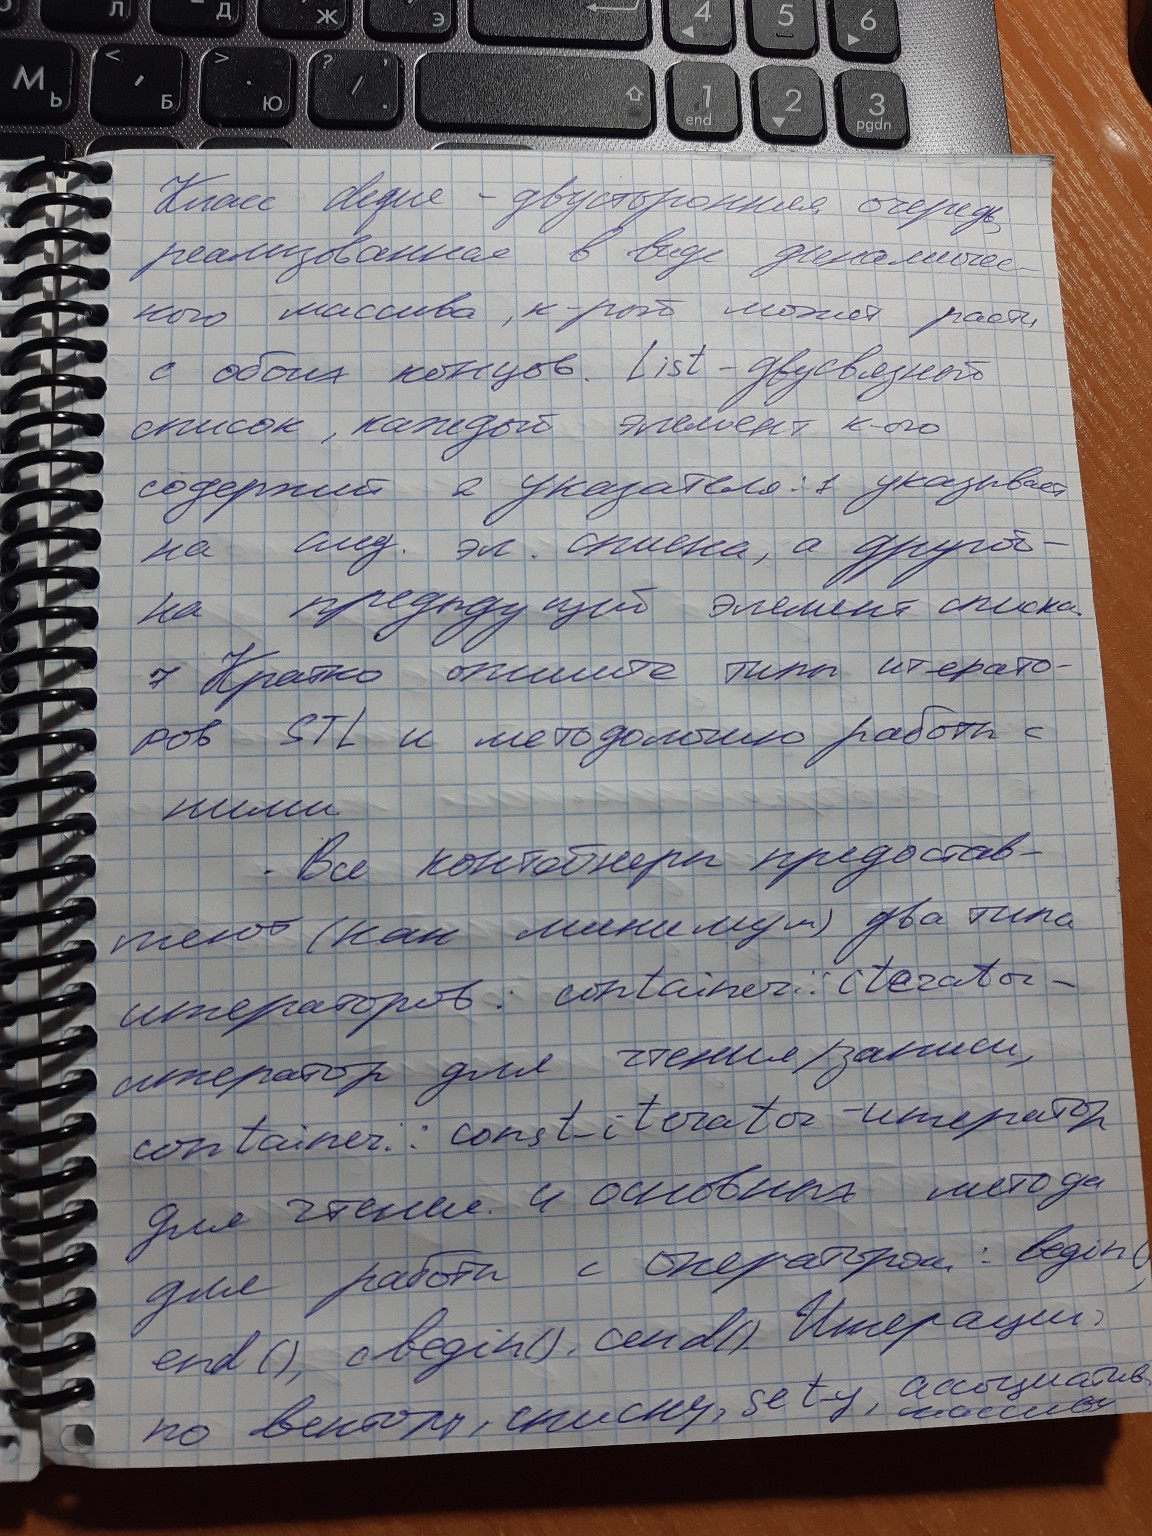 Л
Д
Ж
Э
4
5
6
М
Ь
<
,
Б
>
.
Ю
?
/
,
.
1
end
2
3
pgdn
Класс deque - двусторонняя очередь,
реализованная в виде динамичес-
кого массива, к-рый может расти
с обоих концов. List - двусвязный
список, каждый элемент к-ого
содержит 2 указателя: 1 указывает
на след. эл. списка, а другой -
на предыдущий элемент списка
7 Кратко опишите типы итерато-
ров STL и методологию работы с
ними
- Все контейнеры предостав-
ляют (как минимум) два типа
итераторов: container::iterator -
итератор для чтения/записи,
container::const_iterator - итератор
для чтения. 4 основных метода
для работы с оператором: begin(),
end(), cbegin(), cend(). Итерации
по вектору, списку, set-у, ассоциатив.
массиву